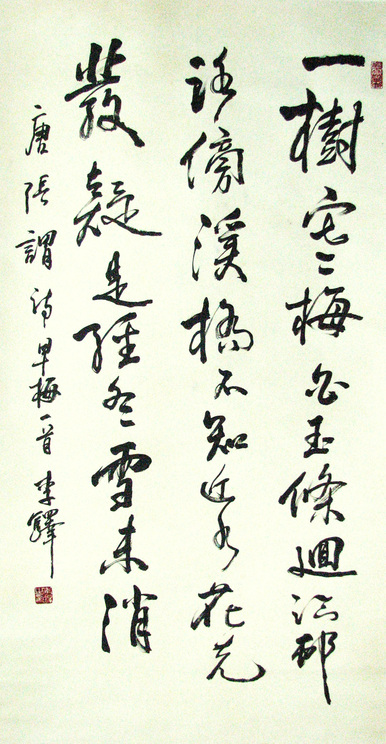 一樹寒梅白玉條迴臨邨
路傍溪橋不知近水花先
發疑是經冬雪未消
唐張謂詩早梅一首 李鐸